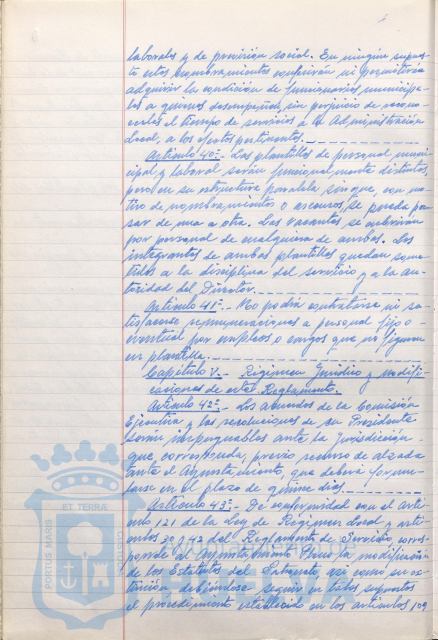 laborales y de previsión social. En ningún supues-
to estos nombramientos conferirán ni permitirán
adquirir la condición de funcionarios municipa-
les a quienes desempeñen, sin perjuicio de recono-
cerles el tiempo de servicios a la Administración
Local, a los efectos pertinentes.
Artículo 40º.- Las plantillas de personal muni-
cipal y laboral serán funcionalmente distintas,
pero en su estructura paralela sin que, con mo-
tivo de nombramientos o ascensos, se pueda pa-
sar de una a otra. Las vacantes se cubrirán
por personal de cualquiera de ambas. Los
integrantes de ambas plantillas quedan some-
tidos a la disciplina del servicio y a la au-
toridad del Director.
Artículo 41º.- No podrá contratarse ni sa-
tisfacerse remuneraciones a personal fijo o
eventual por empleos o cargos que no figuren
en plantilla.
Capítulo V.- Régimen Jurídico y modifi-
caciones de este Reglamento.
Artículo 42º.- Los acuerdos de la Comisión
Ejecutiva y las resoluciones de su Presidente
serán impugnables ante la jurisdicción
que corresponda, previo recurso de alzada
ante el Ayuntamiento, que deberá formu-
larse en el plazo de quince días.
Artículo 43º.- De conformidad con el artí-
culo 121 de la Ley de Régimen Local y artí-
culos 30 y 42 del Reglamento de Servicios, corres-
ponde al Ayuntamiento Pleno la modificación
de los Estatutos del Patronato, así como su ex-
tinción, debiéndose seguir en tales supuestos
el procedimiento establecido en los artículos 109
PORTUS MARIS
ET TERRAE
CUSTODIA